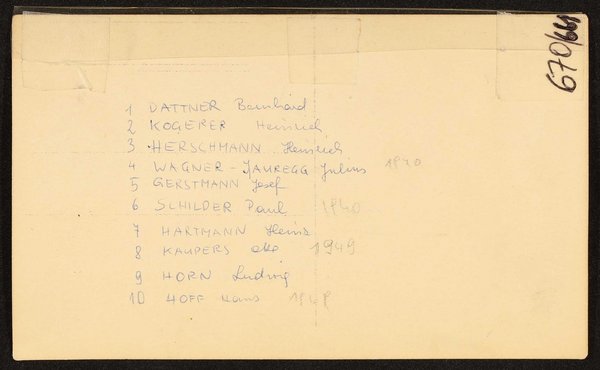 670/661
1 DATTNER Bernhard
2 KOGERER Heinrich
3 HERSCHMANN Heinrich
4 WAGNER-JAUREGG Julius 1940
5 GERSTMANN Josef
6 SCHILDER Paul 1940
7 HARTMANN Heinz
8 KAUPERS
9 HORN Ludwig
10 HOFF Hans